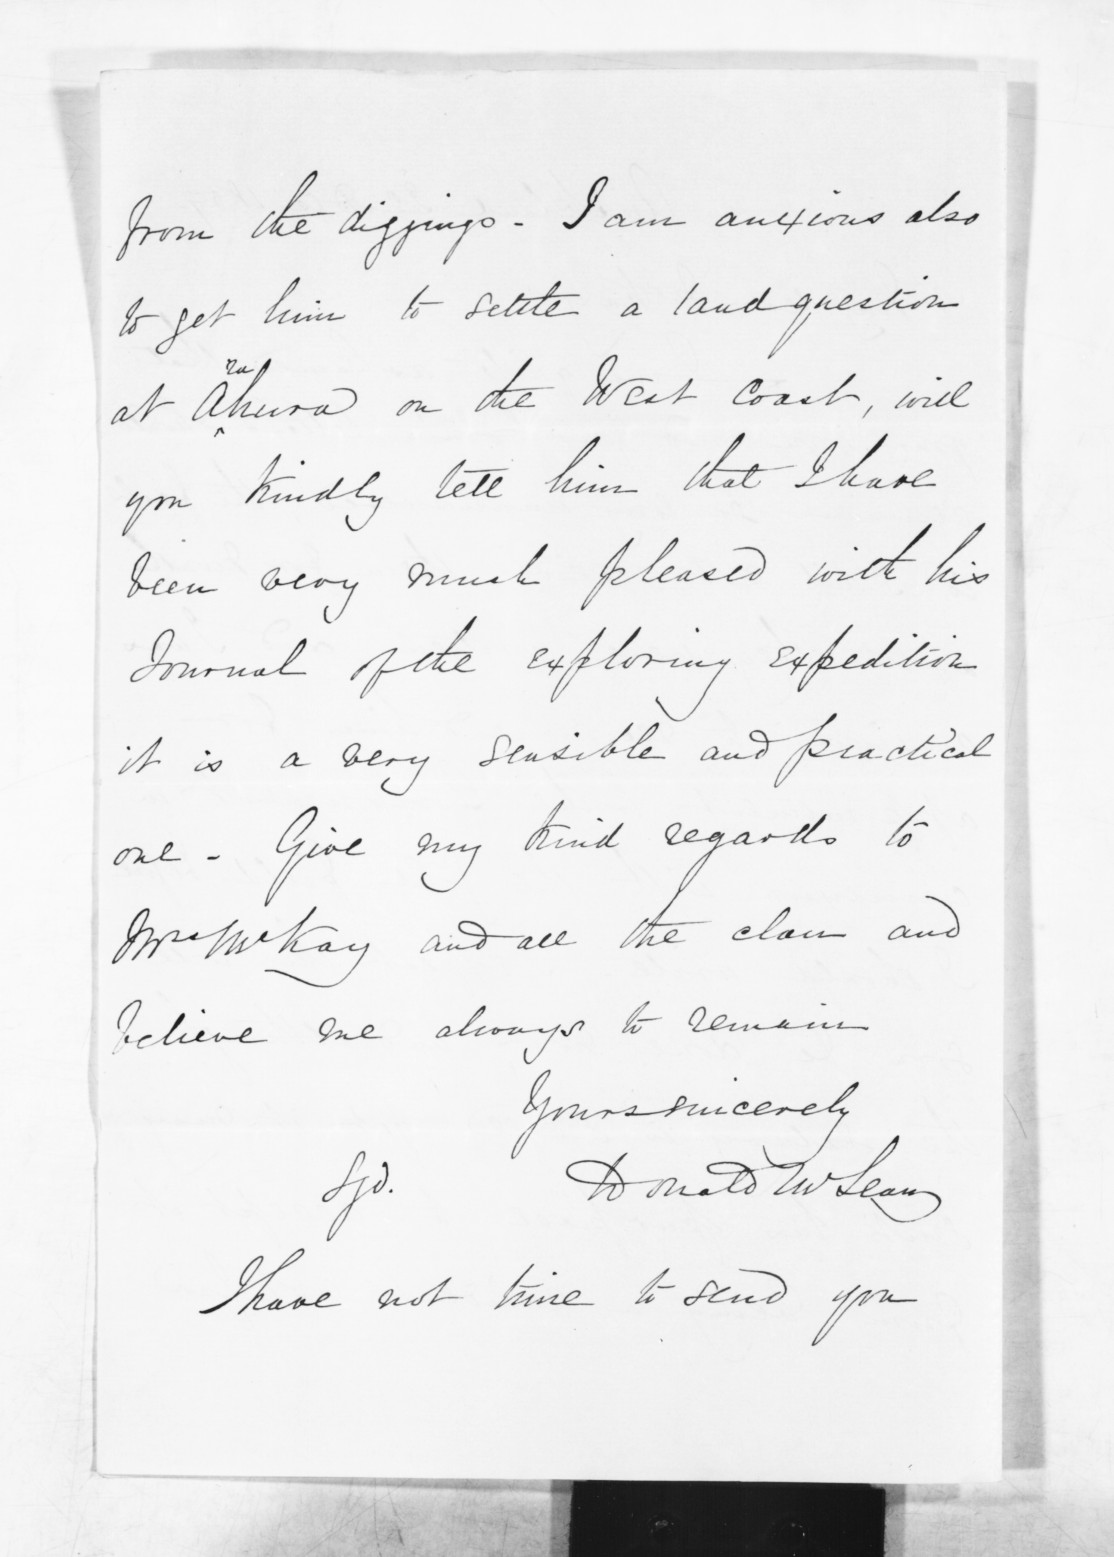 from the diggings - I am anxious also
to get him to settle a land question
at Arahura on the West Coast, will
you kindly tell him that I have
been very much pleased with his
Journal of the exploring expedition
it is a very sensible and practical
one - Give my kind regards to
Mrs McKay and all the clan and
believe me always to remain
Yours sincerely
Sgd. Donald McLean
I have not time to send you